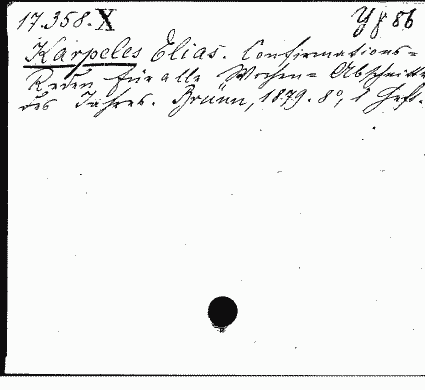 17.358.X Y f 86
Karpeles Elias. Confirmations=
Reden für alle Wochen= Abschnitte
des Jahres. Brünn, 1879. 8°, 1 Heft.